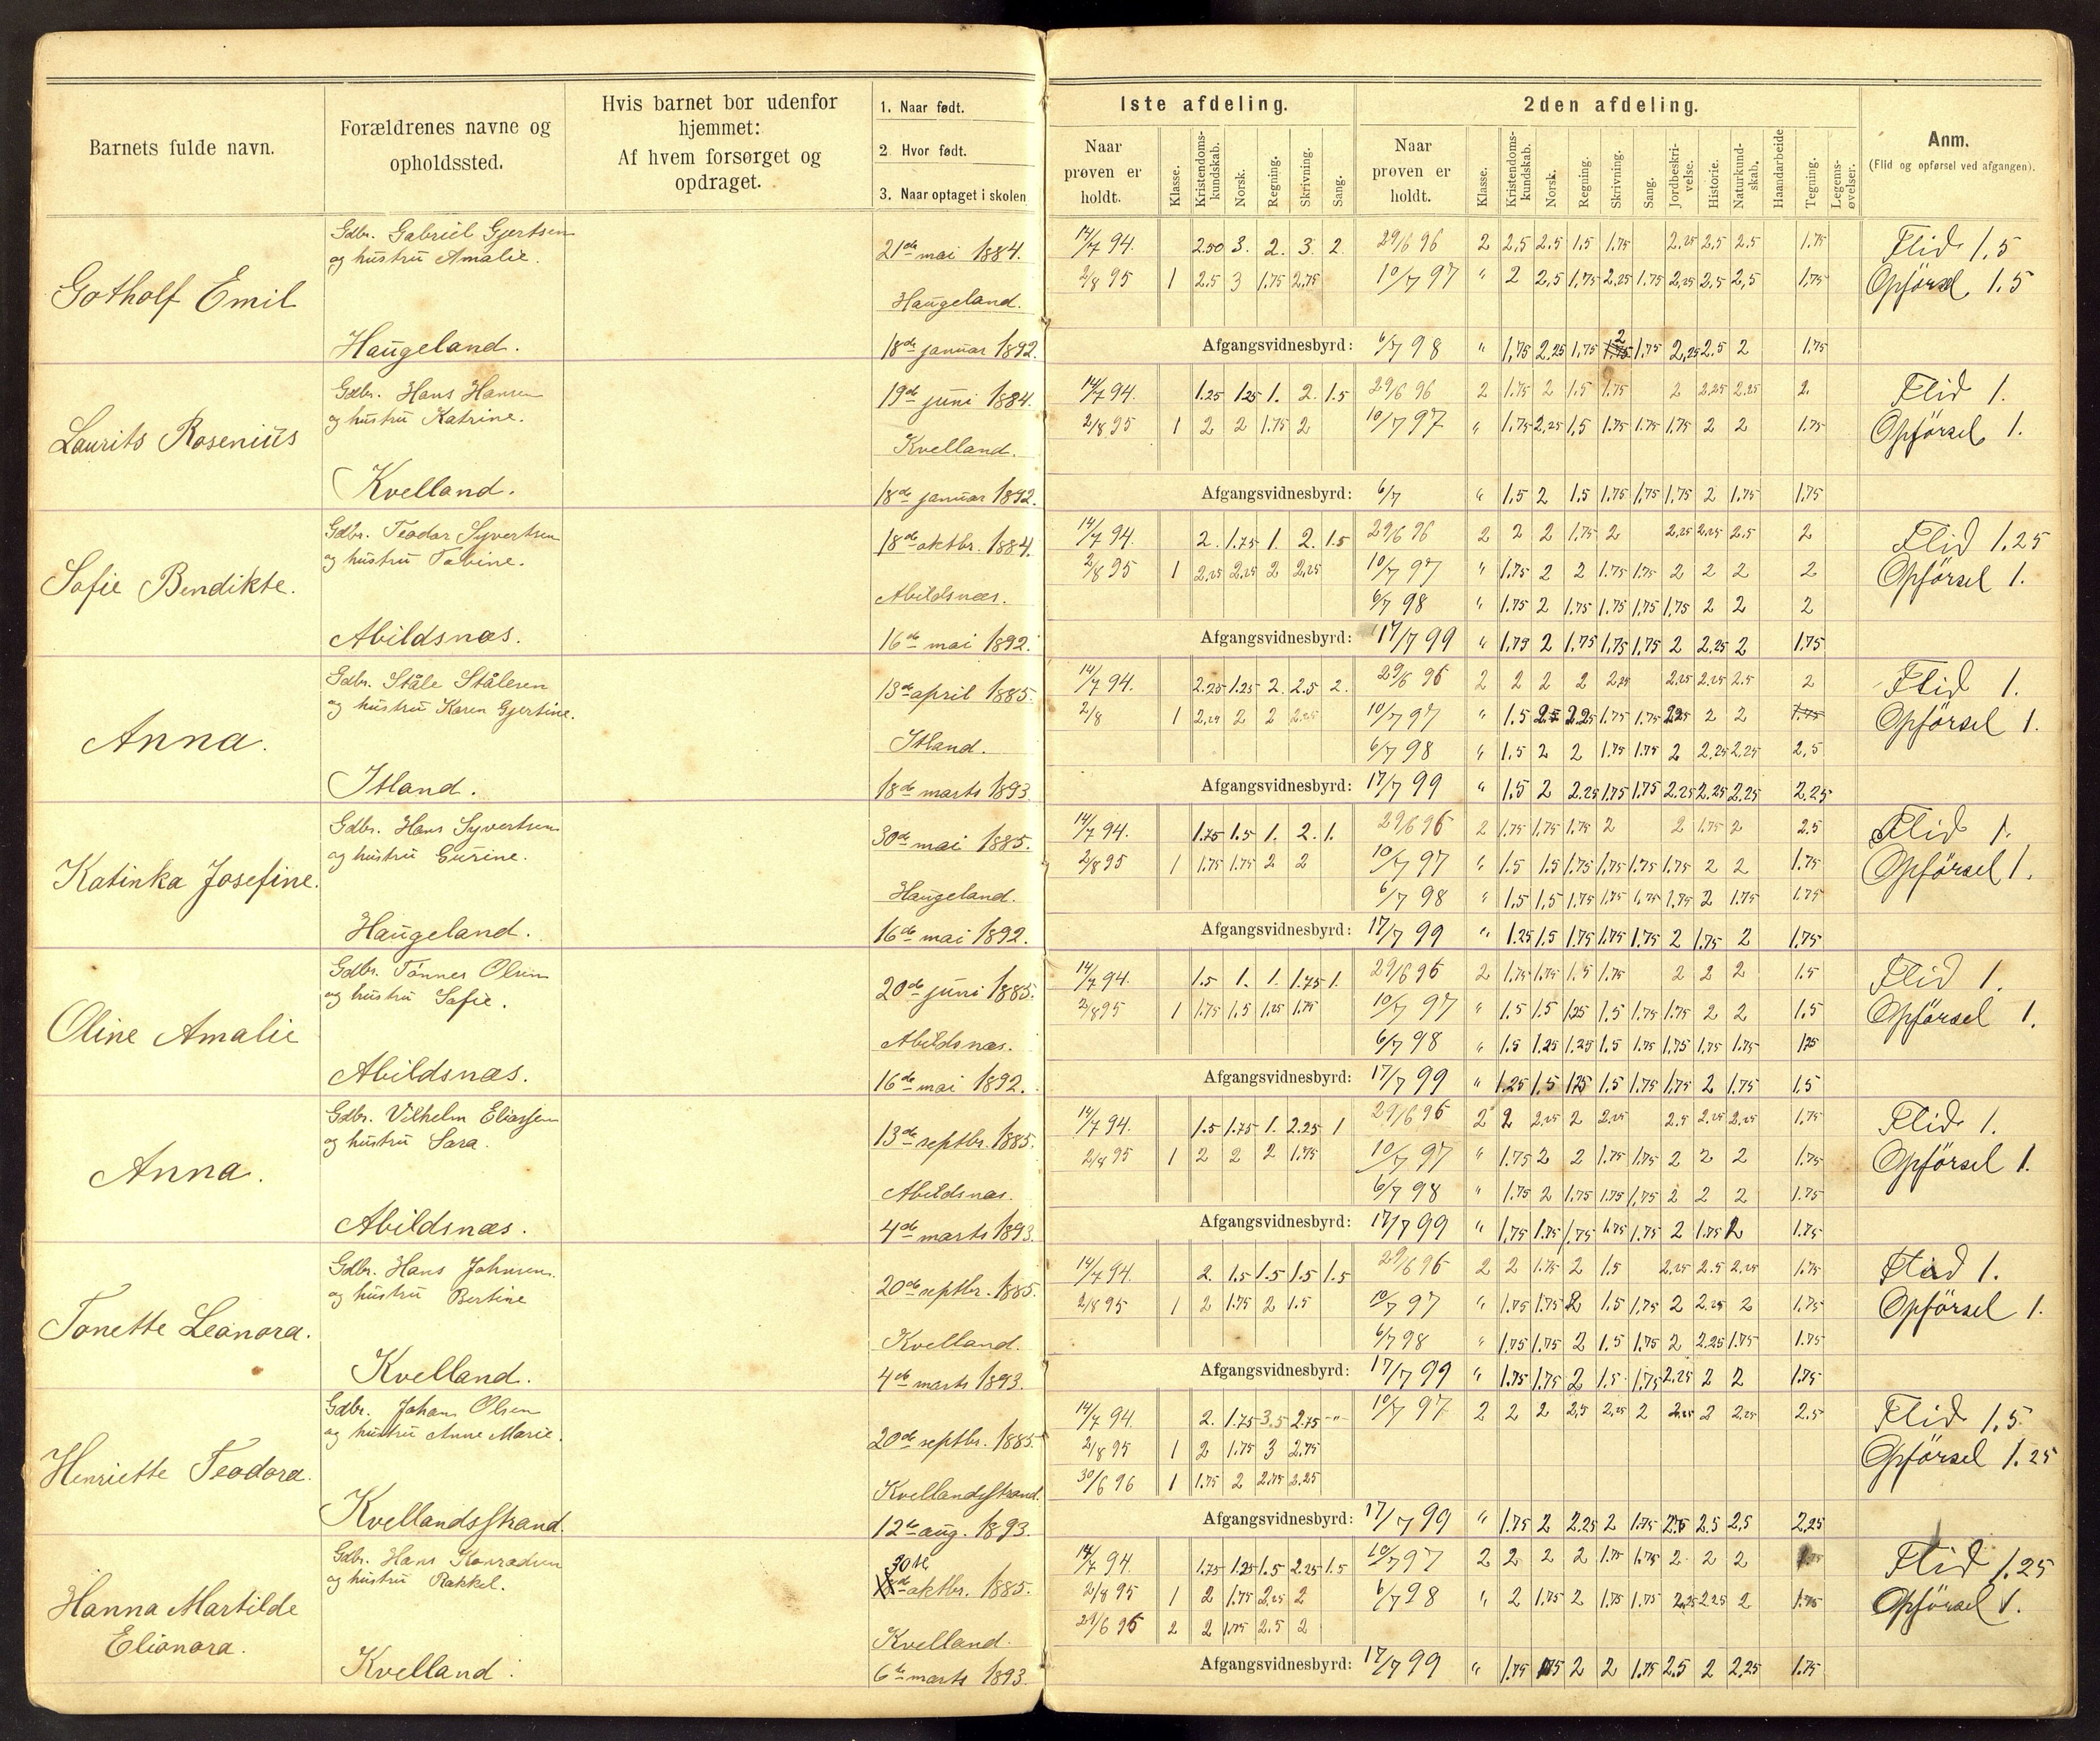 Barnets fulde navn.
Forældrenes navne og
opholdssted.
Hvis barnet bor udenfor
hjemmet:
Af hvem forsørget og
opdraget.
1. Naar født.
2 Hvor født.
3. Naar optaget i skolen
Iste afdeling.
2den afdeling.
Naar
prøven er
holdt.
Klasse.
Kristendoms-
kundskab.
Norsk.
Regning.
Skrivning.
Sang.
Naar
prøven er
holdt.
Klasse.
Kristendoms-
kundskab.
Norsk.
Regning.
Skrivning.
Sang.
Jordbeskri-
velse.
Historie.
Naturkund-
skab.
Haandarbeide
Tegning.
Legems-
øvelser.
Anm.
(Flid og opførsel ved afgangen).
Gotholf Emil
Gdbr. Gabriel Gjertsen
og hustru Amalie.
Haugeland.
21de mai 1884.
Haugeland.
18de januar 1892.
14/7 94. 2.50 3. 2. 3. 2 29/6 96 2 2,5 2.5 1,5 1.75 2,25 2,5 2.5 1.75 Flid 1,5
2/8 95 1 2.5 3 1.75 2,75 10/7 97 " 2 2,5 1,75 2,25 1,75 2,25 2,5 2,5 1,75 Opförsel 1.5
Afgangsvidnesbyrd: 6/7 98 " 1,75 2,25 1,75 2 1,75 2,25 2.5 2 1,75
Laurits Rosenius
Gdbr. Hans Hansen
og hustru Katrine.
Kvelland.
19de juni 1884.
Kvelland.
18de januar 1892.
14/7 94. 1.25 1.25 1. 2. 1.5 29/6 96 2 1.75 2 1.5 1.75 2 2,25 2.25 2. Flid 1.
2/8 95 1 2 2 1.75 2 10/7 97 " 1.75 2,25 1,5 1.75 1.75 1,75 2 2 1.75 Opförsel 1.
Afgangsvidnesbyrd: 6/7 " 1.5 2 1.5 1.75 1,75 1,75 2 1,75 1,75
Sofie Bendikte.
Gdbr. Teodor Syvertsen
og hustru Tobine.
Abildsnæs.
18de oktbr. 1884.
Abildsnæs.
16de mai 1892.
14/7 94. 2. 1.75 1. 2. 1.5 29/6 96 2 2 2 1,75 2 2,25 2,25 2.5 2 Flid 1.25
2/8 95 1 2,25 2,25 2 2,25 10/7 97 " 1.75 2 2 1.75 1.75 2 2 2 2 Opförsel 1.
6/7 98 " 1.75 2 1.75 1.75 1,75 1,75 2 2 2
Afgangsvidnesbyrd: 17/7 99 " 1.75 2 1.75 1,75 1,75 2 2,25 2 1.75
Anna.
Gdbr. Ståle Stålesen
og hustru Karen Gjertine.
Itland.
13de april 1885.
Itland.
18de marts 1893.
14/7 94. 2.25 1.25 2. 2.5 2. 29/6 96 2 2 2 2 2,25 2,25 2.25 2.5 2 Flid 1.
2/8 1 2,25 2 2 2.25 10/7 97 " 1.5 2.25 1.75 1.75 2,25 2 2 1.75 Opförsel 1.
6/7 98 " 1.5 2 2 1.75 1.75 2 2,25 2,25 2,5
Afgangsvidnesbyrd: 17/7 99 " 1,5 2 2.25 1,75 1,75 2.25 2,25 2,25 2,25
Katinka Josefine.
Gdbr. Hans Syvertsen
og hustru Gurine.
Haugeland.
30de mai 1885.
Haugeland.
16de mai 1892.
14/7 94. 1.75 1.5 1. 2. 1. 29/6 96 2 1.75 1.75 1.75 2 2 1.75 2 2.5 Flid 1.
2/8 95 1 1.75 1.75 2 2 10/7 97 " 1.5 1.5 1.75 1,75 1,75 1.75 2 2 1.75 Opförsel 1.
6/7 98 " 1,5 1,5 1.75 1.75 1,75 1,75 2 1.75 1.75
Afgangsvidnesbyrd: 17/7 99 " 1.25 1.5 1.75 1.75 1.75 2 1.75 2 1.75
Oline Amalie
Gdbr. Tönnes Olsen
og hustru Sofie.
Abildsnæs.
20de juni 1885.
Abildsnæs.
16de mai 1892.
14/7 94. 1.5 1. 1. 1.75 1. 29/6 96 2 1.75 1.75 1.5 1.75 2 2 2 1.5 Flid 1.
2/8 95 1 1.75 1,5 1,25 1.75 10/7 97 " 1.5 1.5 1.25 1.5 1.75 1.75 2 2 1,5 Opförsel 1.
6/7 98 " 1.5 1.25 1.25 1.5 1.75 1,75 1,75 1.75 1.25
Afgangsvidnesbyrd: 17/7 99 " 1.25 1.5 1.25 1.5 1.75 1,75 2 1.75 1.5
Anna.
Gdbr. Vilhelm Eliassen
og hustru Sara.
Abildsnæs.
13de septbr. 1885.
Abildsnæs.
4de marts 1893.
14/7 94. 1.5 1.75 1. 2.25 1 29/6 96 2 2 2,25 2 2.25 2.5 2.25 2,25 1.75 Flid 1.
2/8 95 1 2 2 2 1.75 10/7 97 " 1.75 2 2 1.75 1.75 2 2 2 1.75 Opförsel 1.
6/7 98 " 1.75 2 1.75 1.75 1,75 2 2 2 1.75
Afgangsvidnesbyrd: 17/7 99 " 1.75 1.75 1.75 1.75 1.75 2 1.75 2 1.75
Tonette Leonora.
Gdbr. Hans Johnsen.
og hustru Bertine
Kvelland.
20de septbr. 1885.
Kvelland.
4de marts 1893.
14/7 94. 2. 1.5 1.5 1.5 1.5 29/6 96 2 2 1.75 2 1.5 2,25 2.5 2,25 1.75 Flid 1.
2/8 95 1 2 1.75 2 1.5 10/7 97 " 1.75 1.75 2 1.5 1,75 2 2,25 2 1.75 Opförsel 1.
6/7 98 " 1,75 1.75 2 1.5 1.75 2 2.25 1.75 1.75
Afgangsvidnesbyrd: 17/7 99 " 1.75 1.75 2 1.5 1.75 2.25 2 2 1.75
Henriette Teodora.
Gdbr. Johan Olsen
og hustru Anne Marie.
Kvellandsstrand.
20de septbr. 1885.
Kvellandsstrand.
12te aug. 1893.
14/7 94. 2. 1.75 3.5 2.75 -"- 10/7 97 2 2 2 2,5 2,25 2 2,25 2 2,25 2.5 Flid 1.5
2/8 95 1 2 1.75 3 2.75 Opförsel 1.25
30/6 96 1 1.75 2 2.75 2.25
Afgangsvidnesbyrd: 17/7 99 " 1.75 2 2.25 2 1.75 2.5 2.5 2,5 2,25
Hanna Martilde
Elionora.
Gdbr. Hans Konradsen
og hustru Rakkel.
Kvelland.
30te
oktbr. 1885.
Kvelland.
6te marts 1893.
14/7 94. 1.75 1.25 1.5 2.25 1.5 10/7 97 2 2 2 2 1.75 1.75 2 2 2 Flid 1.25
2/8 95 1 2 1.75 2.25 2 6/7 98 " 2 1.75 2 1.75 1.75 2.25 2.25 2 1.75 Opförsel 1.
29/6 96 2 2 1.75 2.5 2
Afgangsvidnesbyrd: 17/7 99 " 1.75 1.75 2 2 1.75 2.5 2 2,25 1.75